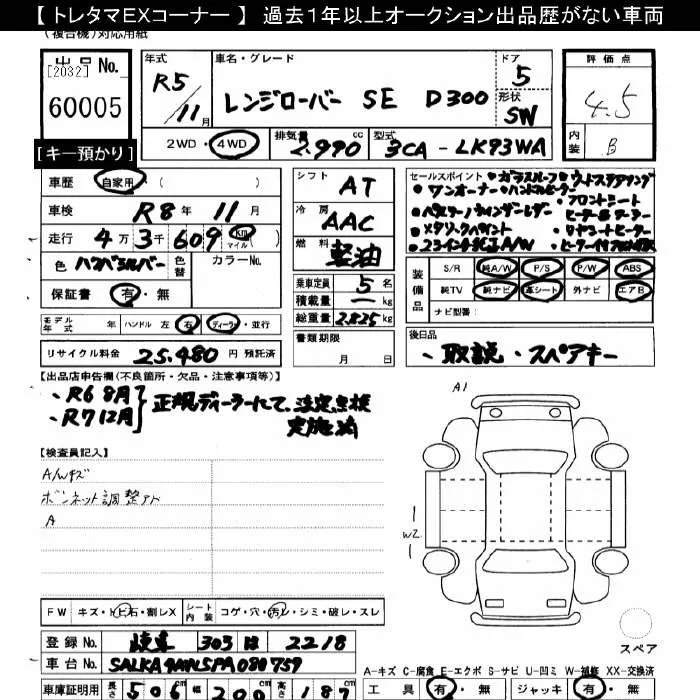 【トレタマEXコーナー】 過去1年以上オークション出品歴がない車両
(複合機)対応用紙
出品 No.
[2032]
60005
[キー預かり]
年式
R5/11月
車名・グレード
レンジローバー SE D300
ドア
5
形状
SW
2WD・4WD
排気量
2,990 cc
型式
3CA - LK93WA
評価点
4.5
内装
B
車歴 自家用・( )
車検 R8年 11月
走行 4万3千609 km マイル
色
色替
カラーNo.
保証書 有・無
シフト AT
冷房 AAC
燃料 軽油
乗車定員 5名
積載量 ー kg
総重量 2,825 kg
セールスポイント ・ガラスルーフ
・ワンオーナー
・メタリックペイント
・23インチ純正A/W
装備品
S/R 純A/W P/S P/W ABS
純TV 純ナビ 革シート 外ナビ エアB
ナビ型番:
モデル年式 年 ハンドル 左 右 ディーラー・並行
リサイクル料金 25,480 円 預託済
書類期限
月 日
後日品
・取説・スペアキー
【出品店申告欄(不良箇所・欠品・注意事項等)】
・R6 8月
・R7 12月
正規ディーラーにて、法定点検
実施済
【検査員記入】
A/Wキズ
ボンネット調整アト
A
A1
W2
FW キズ・トビ石・割レX
シート内装 コゲ・穴・汚レ・シミ・破レ・スレ
スペア
登録No. 岐阜 303 は 2218
車台No.
A-キズ C-腐食 E-エクボ S-サビ U-凹ミ W-補修 XX-交換済
車庫証明用 長さ 506 cm 幅 200 cm 高さ 187
工具 有・無 ジャッキ 有・無